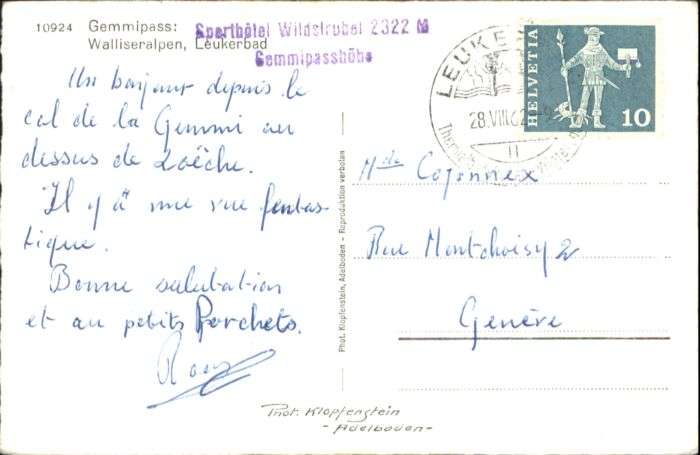 10924 Gemmipass:
Walliseralpen, Leukerbad
Sporthôtel Wildstrubel 2322 M
Gemmipasshöhe
Un bonjour depuis le
col de la Gemmi au
dessus de Loèche.
Il y a une vue fantas
tique.
Bonne salutation
et au petits Porchets.
LEUKE
28.VIII.62
HELVETIA
10
Mde Cojonnex
Rue Montchoisy 2
Genève
Phot. Klopfenstein, Adelboden - Reproduktion verboten
Phot. Klopfenstein
- Adelboden -